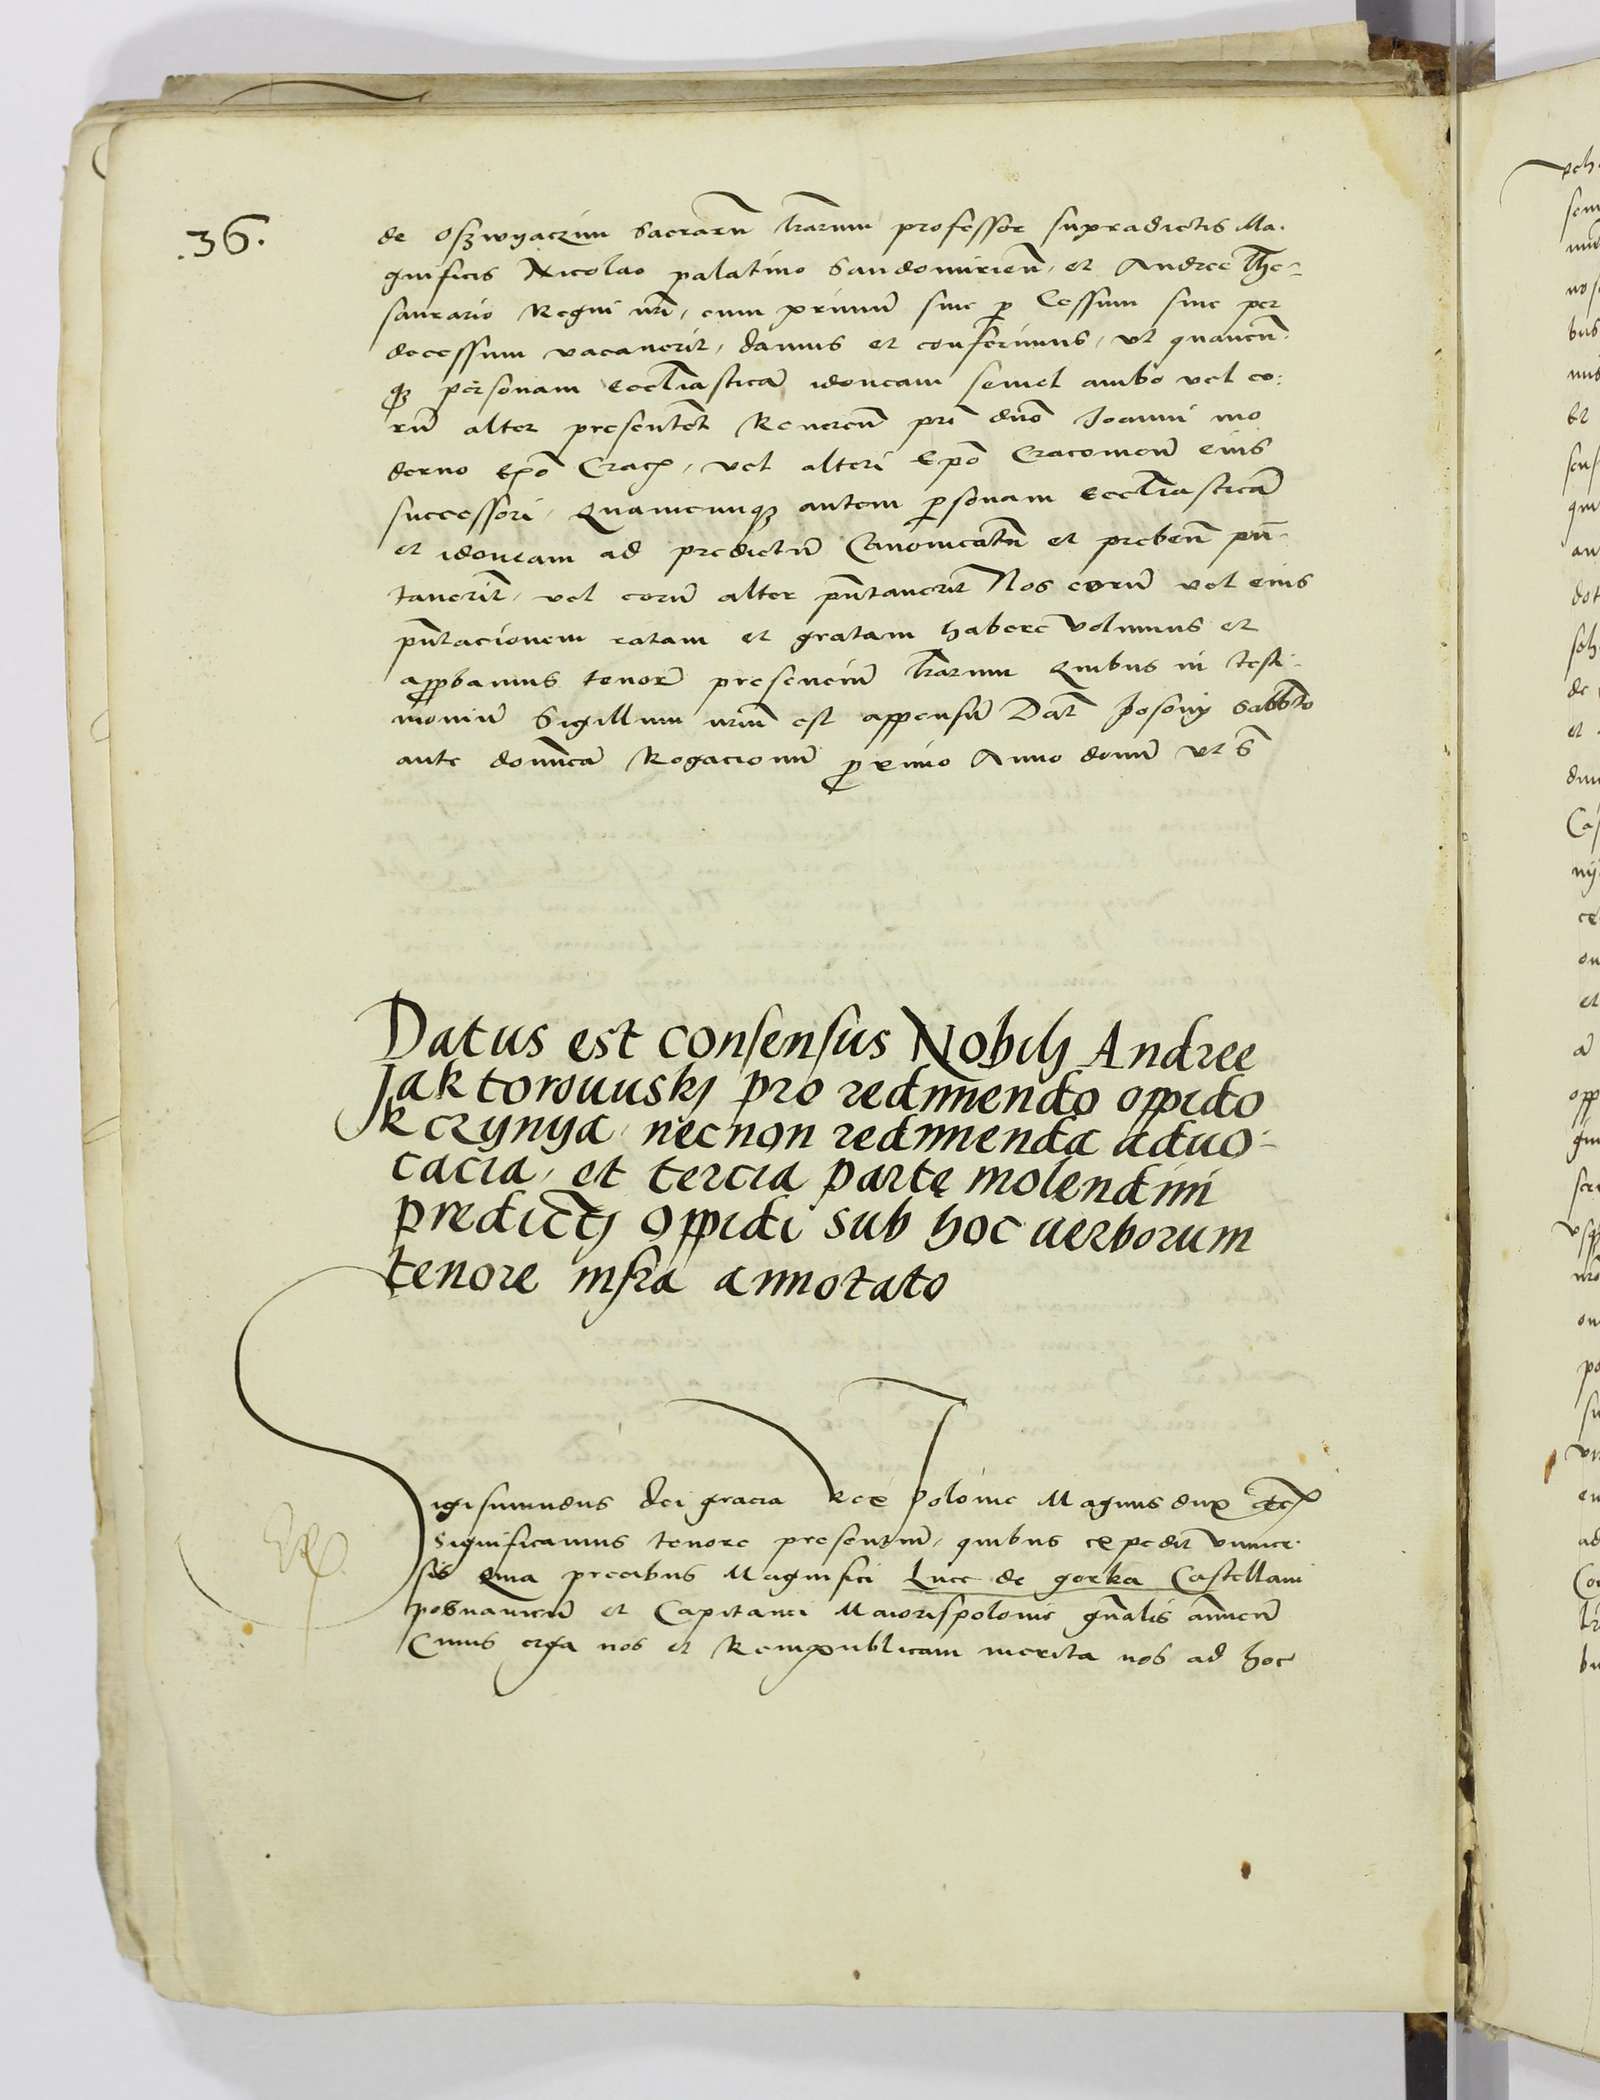 .36.
de Oszwyaczim Sacrarū l̄rarum professor supradictis Ma.
gnificis Nicolao palatino Sandomirien̄, et Andree The-
saurario Regni nr̄i, cum primum siue p̱ Cessum siue per
decessum vacauerit, damus et conferimus, vt quamcun̄
qꝫ personam eccl̄iasticā idoneam semel ambo vel eo:
rū alter presentet Reueren̄ pr̄i dn̄o Joanni mo
derno Ep̄o Crac̄, vel alteri Ep̄o Cracouien̄ eius
successori, Quamcunqꝫ autem p̱sonam eccl̄iasticā
et idoneam ad predictū Canonicatū et preben̄ pn̄-
tauerīt, vel eorū alter pn̄tauerit Nos eorū vel eius
pn̄tacionem ratam et gratam habere volumus et
app̱bamus tenorē presenciū l̄rarum Quibus in testi-
moniū Sigillum nr̄um est appensū Dat̄ Posonij Sabb̄to
ante dom̄icā Rogacionū ꝓximo Anno domī vt s̄
Datus est consensus Nobilj Andree
Jaktorouuskj pro redimendo oppido
Kczynya, necnon redimenda aduo-
cacia, et tercia parte molendini
predictj oppidi sub hoc uerborum
tenore infra annotato
Sigismundus dei gracia Rex Polonie Magnus dux etc̄
Significamus tenore presentiū, quibus expedit vniuer-
sis Quia precibus Magnifici Luce de gorka Castellani
posnanien̄ et Capitanei Maiorispolonie gn̄alis annuen̄
Cuius erga nos et Rempublicam merita nos ad hoc